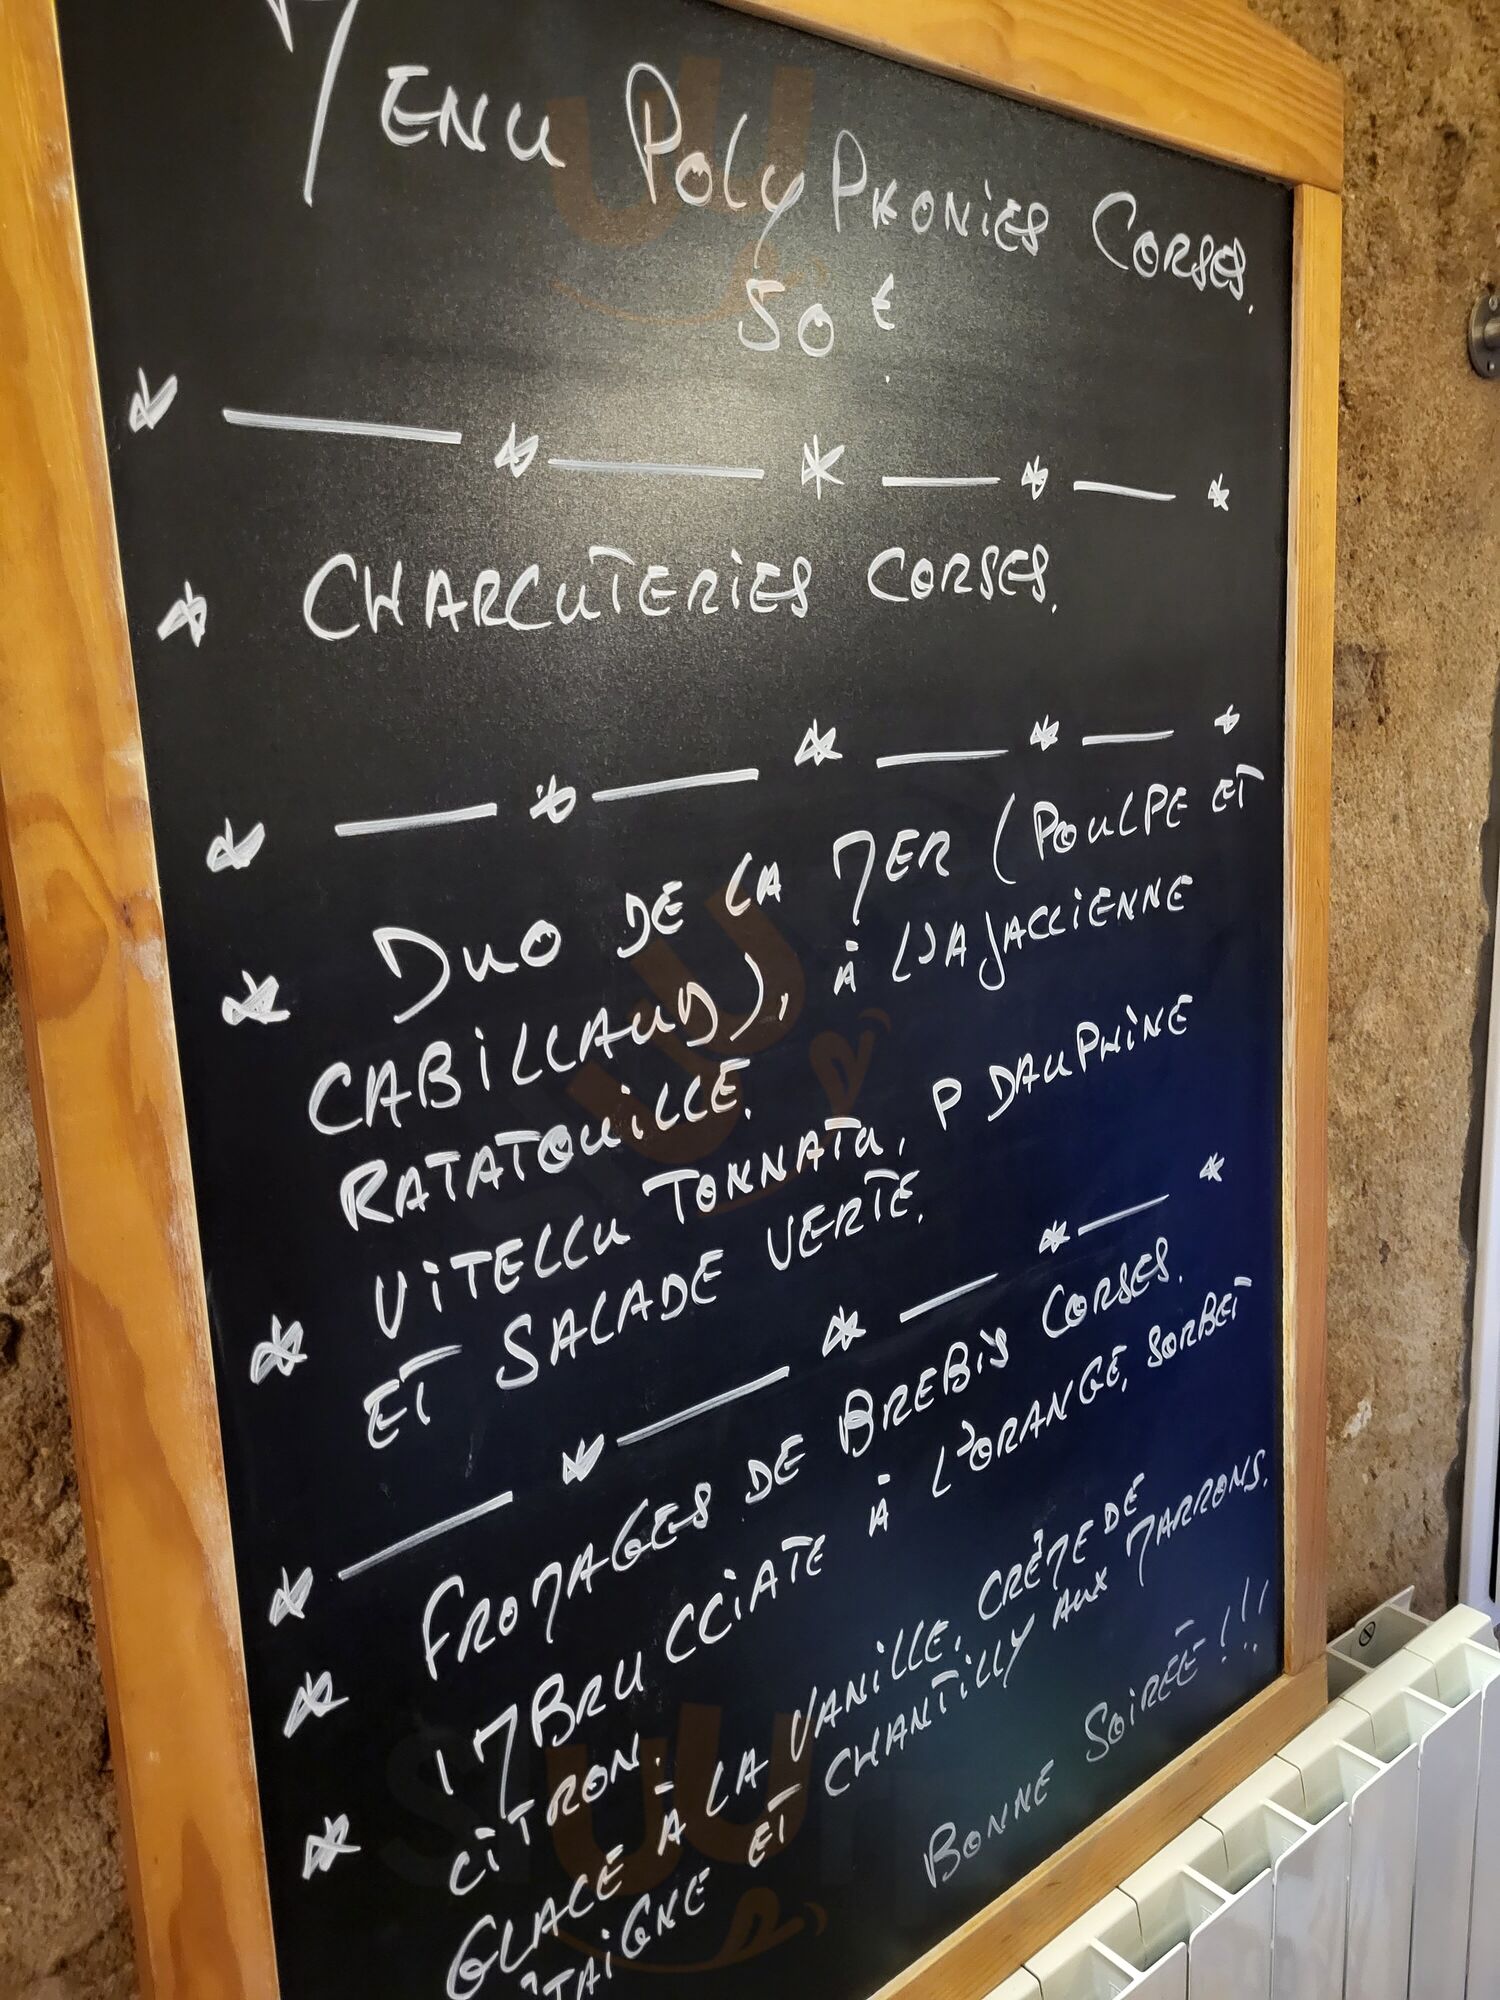 MENU POLYPHONIES CORSES.
50 €
* CHARCUTERIES CORSES.
* DUO DE LA MER (POULPE ET
CABILLAUD), À L'AJACCIENNE
RATATOUILLE.
* VITELLU TONNATU, P DAUPHINE
ET SALADE VERTE.
* FROMAGES DE BREBIS CORSES.
IMBRUCCIATE À L'ORANGE, SORBET
CITRON.
* GLACE À LA VANILLE, CRÈME DE
TAIGNE ET CHANTILLY AUX MARRONS.
BONNE SOIRÉE !!!